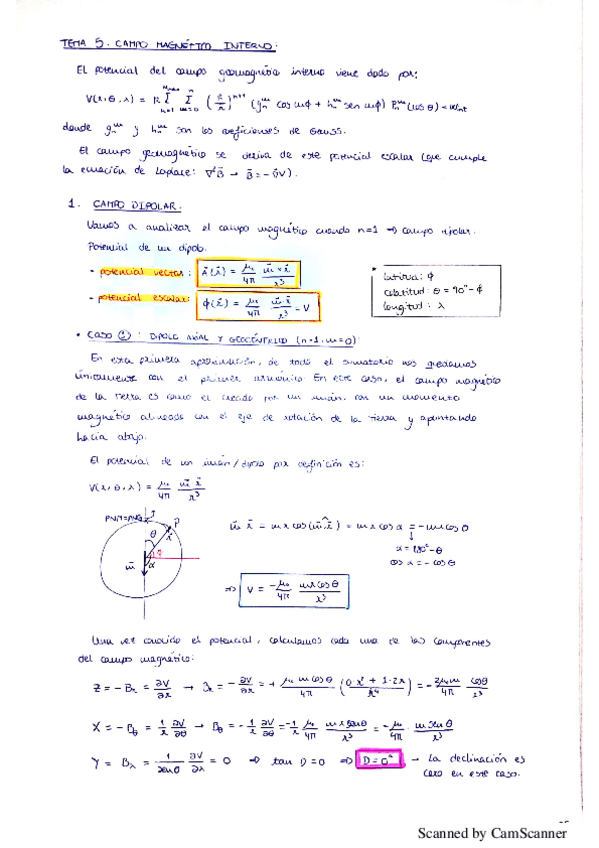 TEMA 5. CAMPO MAGNÉTICO INTERNO:
El potencial del campo geomagnético interno viene dado por:
V(r,θ,λ) = R Σ Σ (R/r)^{n+1} (g_n^m cos mφ + h_n^m sen mφ) P_n^m (cos θ) =
donde g_n^m y h_n^m son los coeficientes de Gauss.
El campo geomagnético se deriva de este potencial escalar (que cumple
la ecuación de Laplace: B̄ = -∇V).
1. CAMPO DIPOLAR.
Vamos a analizar el campo magnético cuando n=1 → campo dipolar.
Potencial de un dipolo.
- potencial vector: Ā(x̄) = μ₀/4π m̄ × x̄/r³
- potencial escalar: φ(x̄) = μ₀/4π m̄·x̄/r³ = V
* latitud: φ
colatitud: θ = 90° - φ
longitud: λ
• CASO ①: DIPOLO AXIAL Y GEOCÉNTRICO (n=1, m=0):
En esta primera aproximación, de todo el sumatorio nos quedamos
únicamente con el primer armónico. En este caso, el campo magnético
de la tierra es como el creado por un imán, con un momento
magnético alineado con el eje de rotación de la tierra y apuntando
hacia abajo.
El potencial de un imán/dipolo por definición es:
V(r,θ,λ) = μ₀/4π m̄·r̄/r³
PNM=PNG
P
θ
r̄
m̄
α
m̄ r̄ = mr cos(m̄,r̄) = mr cos α = -mr cos θ
α = 180° - θ
cos α = - cos θ
⇒ V = -μ₀/4π mr cos θ/r³
Una vez conocido el potencial, calculamos cada una de las componentes
del campo magnético:
Z = -Br = ∂V/∂r → Br = -∂V/∂r = + μ₀ m cos θ/4π (0·r² + 1·2r/r⁴) = - 2μ₀m/4π cos θ/r³
X = -Bθ = 1/r ∂V/∂θ → Bθ = -1/r ∂V/∂θ = -1/r μ₀/4π mr sen θ/r³ = -μ₀/4π m sen θ/r³
Y = Bλ = 1/sen θ ∂V/∂λ = 0 ⇒ tan D = 0 ⇒ D = 0° → La declinación es
cero en este caso.
Scanned by CamScanner